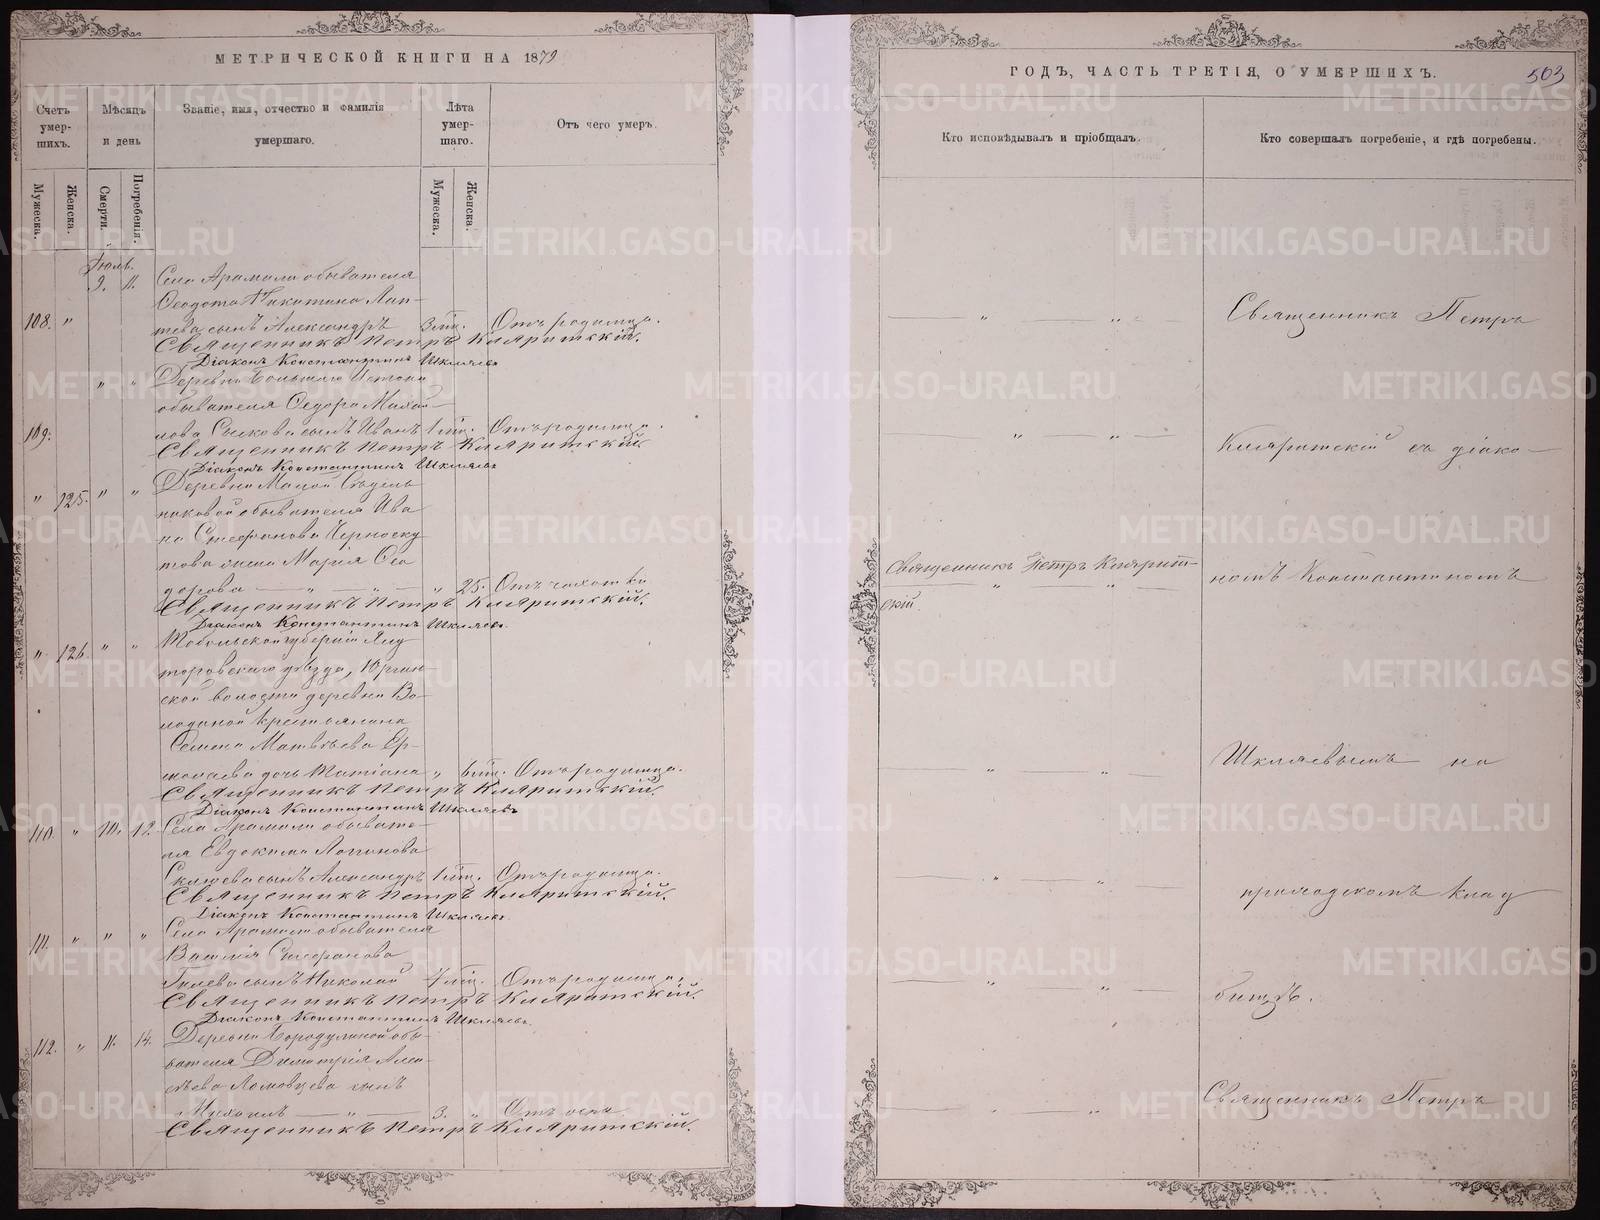 МЕТРИЧЕСКОЙ КНИГИ НА 1879
Счетъ умер-шихъ.
Мѣсяцъ и день
Званіе, имя, отчество и фамилія умершаго.
Лѣта умер-шаго.
Отъ чего умеръ.
Мужеска.
Женска.
Смерти.
Погребенія.
Мужеска.
Женска.
Іюль.
9. 11. Села Арамили обывателя
Ѳеодота Никитина Лап-
108. " тева сынъ Александръ 3 мц. Отъ родимца.
Священникъ Петръ Кляритскій.
Діаконъ Константинъ Шкляевъ
" " Деревни Большаго Истока
обывателя Ѳедора Михай-
109. лова Сыскова сынъ Иванъ 1 мц. Отъ родимца.
Священникъ Петръ Кляритскій
Діаконъ Константинъ Шкляевъ
" 125. " " Деревни Малой Седель-
никовой обывателя Ива
на Стефанова Черноску
това жена Марія Ѳео
дорова — " — " — " 25. Отъ чахотки
Священникъ Петръ Кляритскій.
Діаконъ Константинъ Шкляевъ.
" 126. " " Тобольской губерніи Ялу
торовскаго уѣзда,
ской волости деревни Во-
лодиной крестьянина
Семена Матвѣева Ер-
молаева дочь Татіана " 6 мц. Отъ родимца.
Священникъ Петръ Кляритскій.
Діаконъ Константинъ Шкляевъ
110. " 10. 12. Села Арамили обывате-
ля Евдокима Логинова
сынъ Александръ 1 мц. Отъ родимца.
Священникъ Петръ Кляритскій.
Діаконъ Константинъ Шкляевъ.
111. " " " Села Арамили обывателя
Василія Стефанова
Гилева сынъ Николай 4 мц. Отъ родимца.
Священникъ Петръ Кляритскій.
Діаконъ Константинъ Шкляевъ.
112. " 11. 14. Деревни Бородулиной обы-
вателя Димитрія Але-
ксѣева Ломовцева сынъ
Михаилъ — " — 3. " Отъ оспы
Священникъ Петръ Кляритскій.
ГОДЪ, ЧАСТЬ ТРЕТІЯ, О УМЕРШИХЪ.
503
Кто исповѣдывалъ и пріобщалъ.
Кто совершалъ погребеніе, и гдѣ погребены.
Священникъ Петръ
Кляритскій съ діако-
Священникъ Петръ Клярит-
скій.
номъ Константиномъ
Шкляевымъ на
приходскомъ клад
бищѣ.
Священникъ Петръ
METRIKI.GASO-URAL.RU